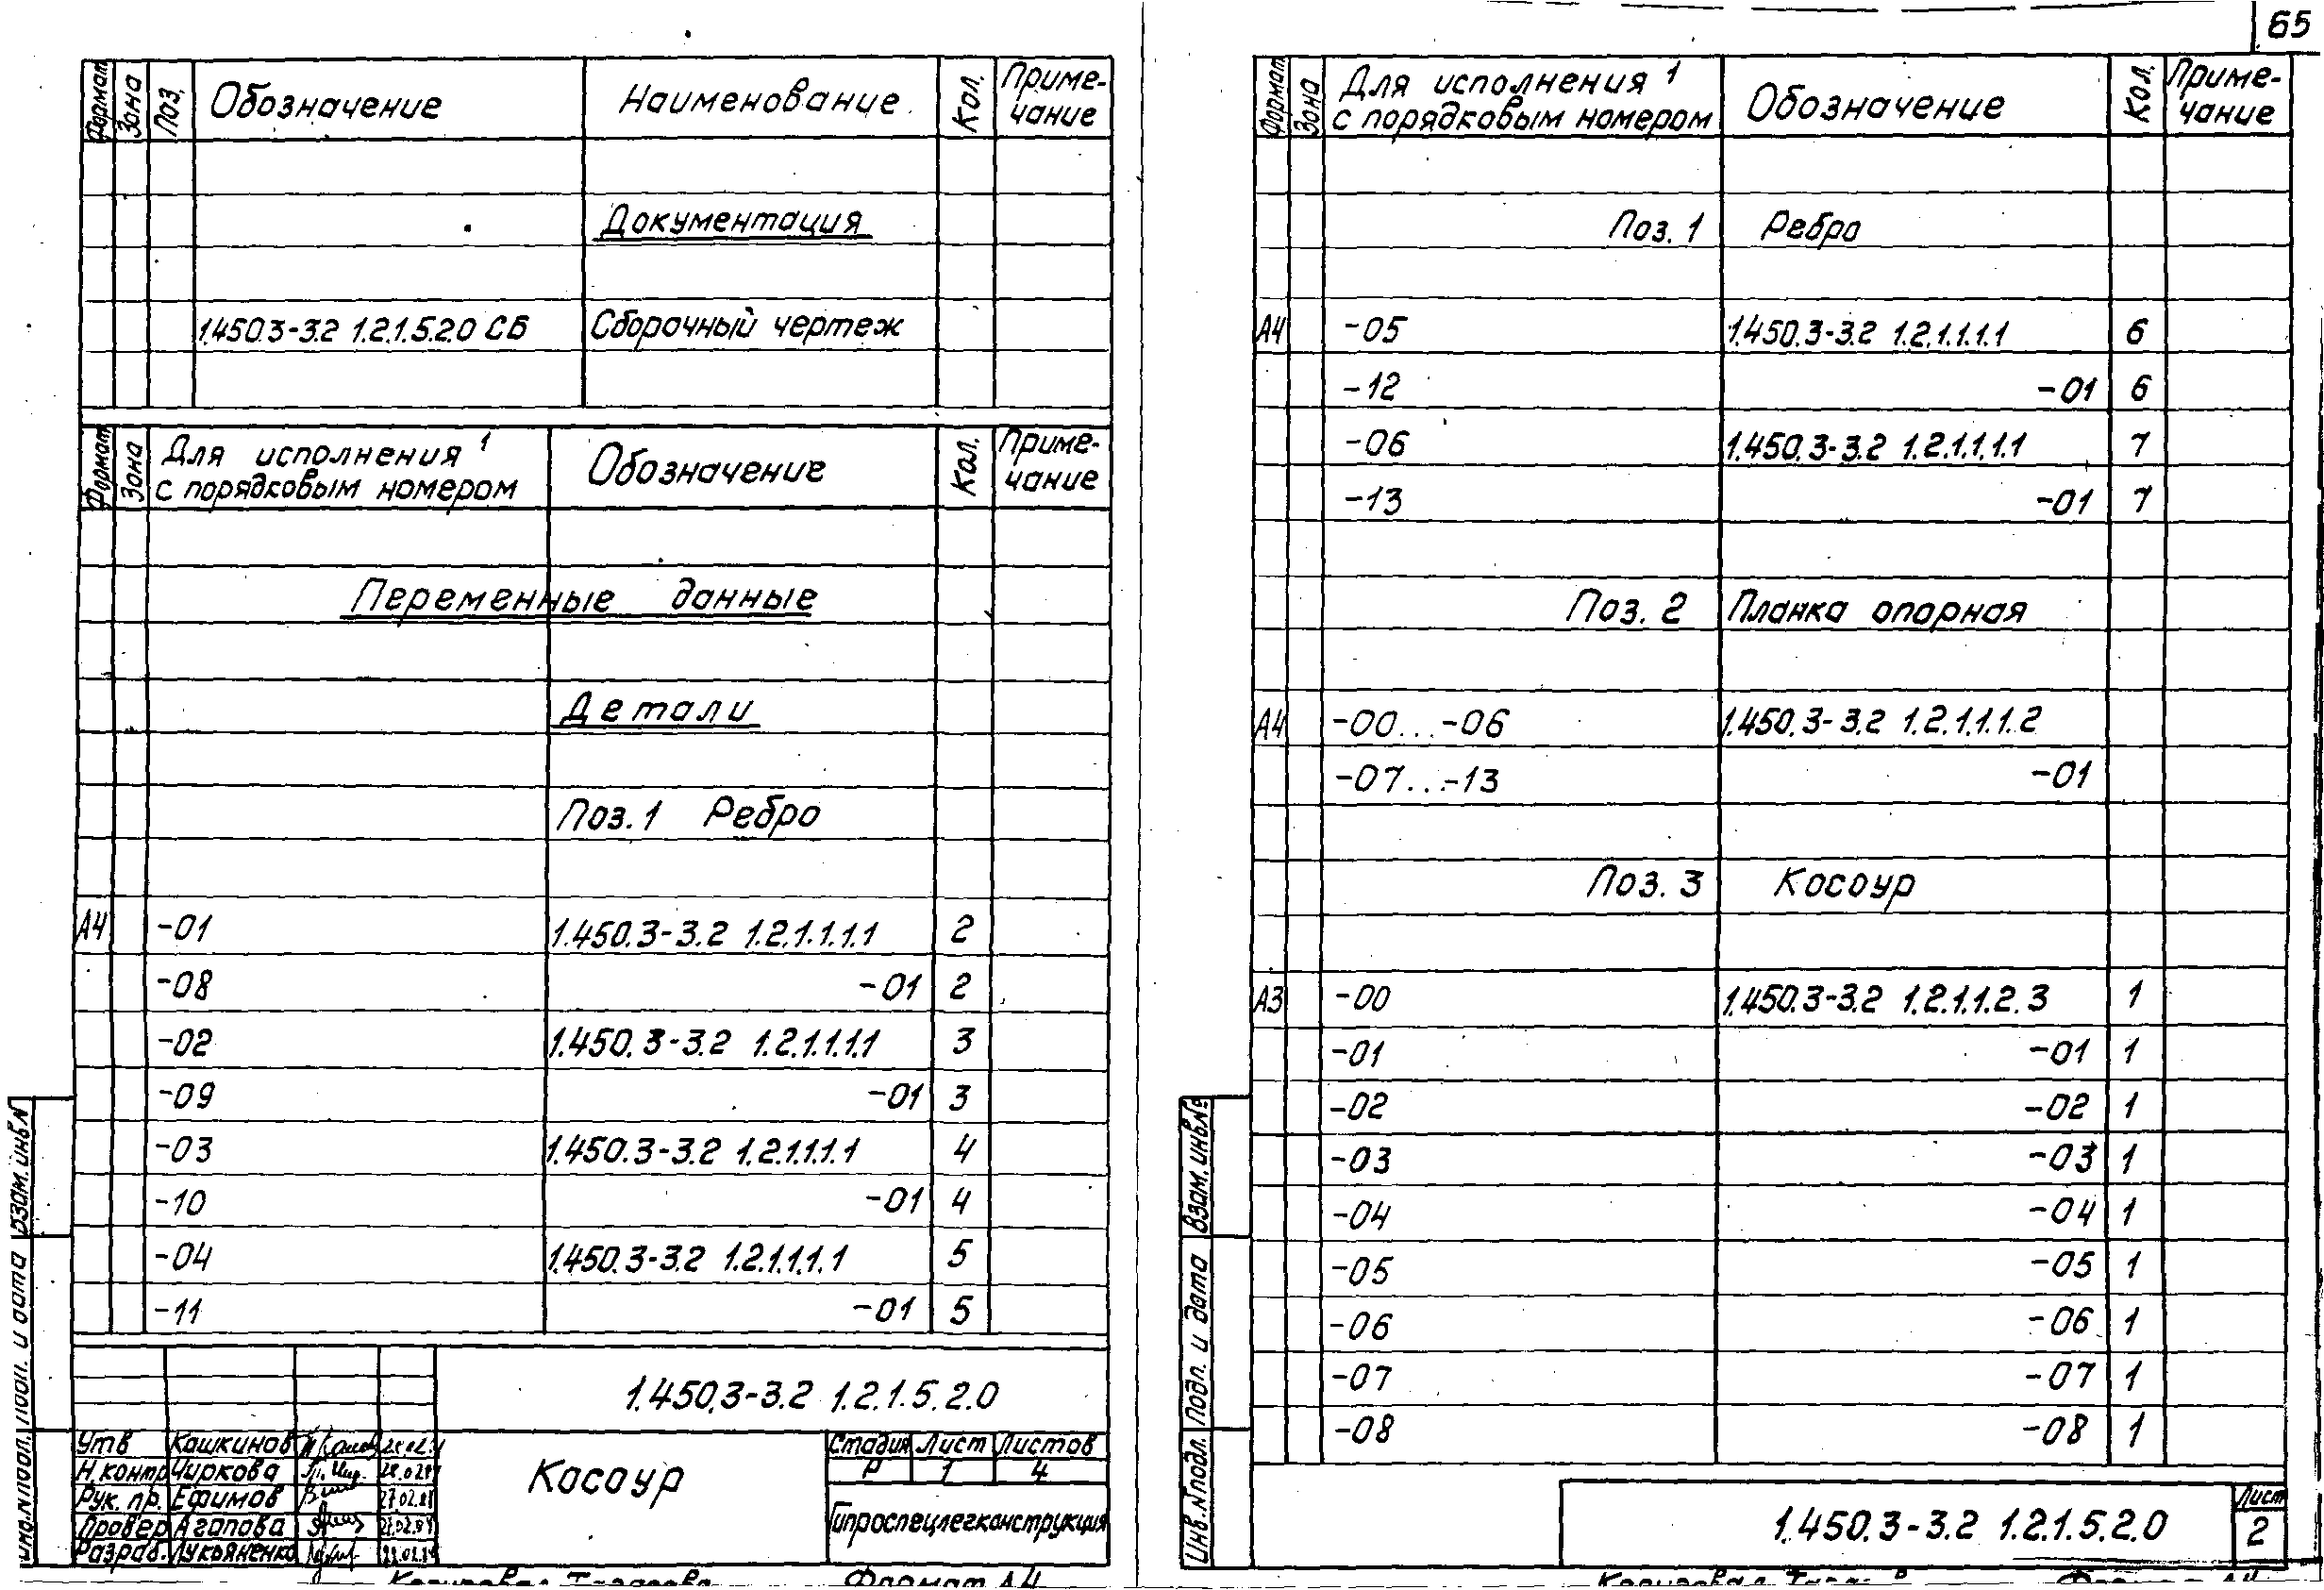 65
Формат Зона Поз. Обозначение Наименование Кол. Приме-
чание
Документация
1.450.3-3.2 1.2.1.5.2.0 СБ Сборочный чертеж
Формат Зона Для исполнения 1
с порядковым номером Обозначение Кол. Приме-
чание
Переменные данные
Детали
Поз. 1 Ребро
А4 -01 1.450.3-3.2 1.2.1.1.1.1 2
-08 -01 2
-02 1.450.3-3.2 1.2.1.1.1.1 3
-09 -01 3
-03 1.450.3-3.2 1.2.1.1.1.1 4
-10 -01 4
-04 1.450.3-3.2 1.2.1.1.1.1 5
-11 -01 5
1.450.3-3.2 1.2.1.5.2.0
Утв Кашкинов
Н.контр Чиркова
Рук. пр. Ефимов 27.02.84
Провер Агапова
Разраб. Лукьяненко
Косоур
Стадия Лист Листов
Р 1 4
Гипроспецлегконструкция
Взам. инв.№
Подп. и дата
Инв.№подл.
Формат А4
Формат Зона Для исполнения 1
с порядковым номером Обозначение Кол. Приме-
чание
Поз. 1 Ребро
А4 -05 1.450.3-3.2 1.2.1.1.1.1 6
-12 -01 6
-06 1.450.3-3.2 1.2.1.1.1.1 7
-13 -01 7
Поз. 2 Планка опорная
А4 -00...-06 1.450.3-3.2 1.2.1.1.1.2
-07...-13 -01
Поз. 3 Косоур
А3 -00 1.450.3-3.2 1.2.1.1.2.3 1
-01 -01 1
-02 -02 1
-03 -03 1
-04 -04 1
-05 -05 1
-06 -06 1
-07 -07 1
-08 -08 1
Взам. инв.№
Подп. и дата
Инв.№подл.
1.450.3-3.2 1.2.1.5.2.0
Лист
2